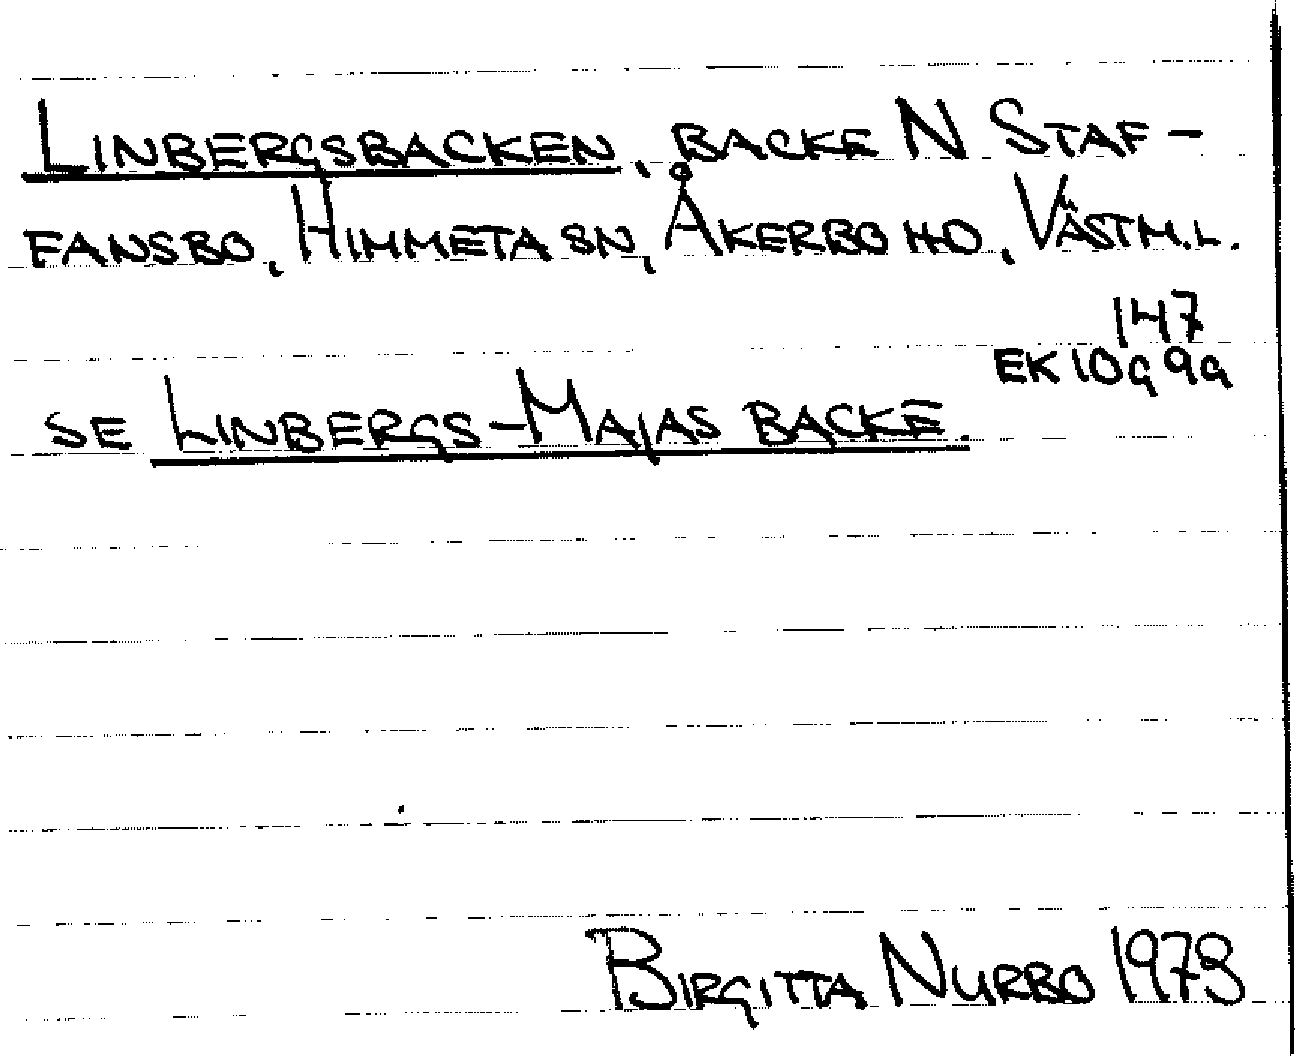 LINBERGSBACKEN, BACKE N STAF-
FANSBO, HIMMETA SN, ÅKERBO HD, VÄSTM.L.
147
EK 10G 9a
SE LINBERGS-MAJAS BACKE.
BIRGITTA NURBO 1973